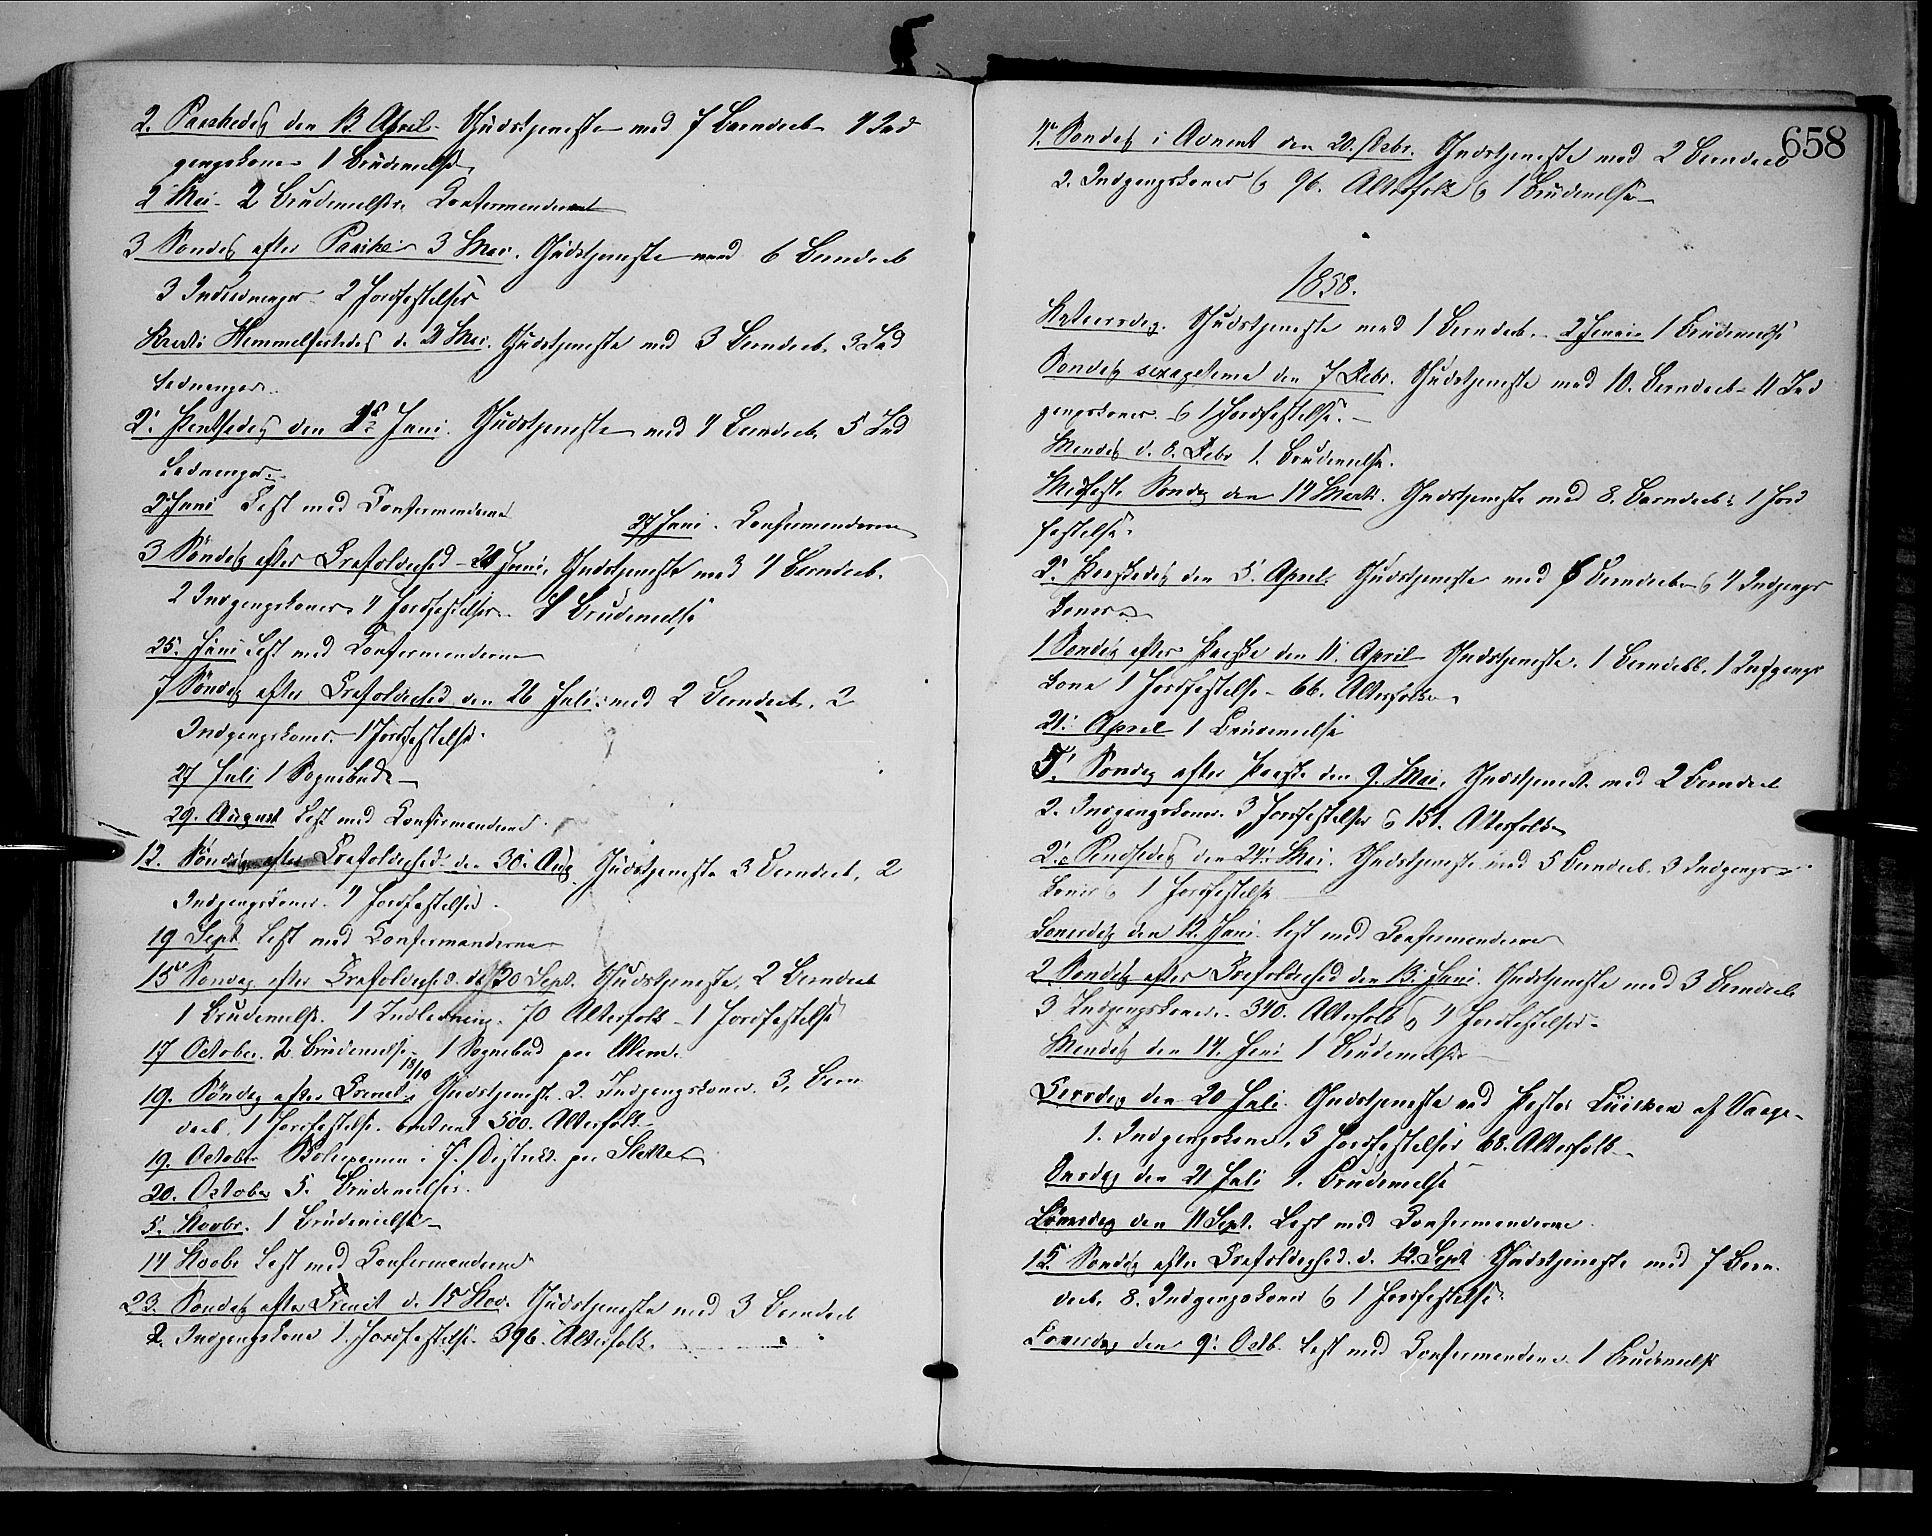 2. Paaskedag den 13 April. Gudstjeneste med 7 Barnedaab 4 Ind
gangskoner 1 Brudevielse
2 Mai. 2 Brudevielser. Confirmanderne
3 Søndag efter Paaske 3 Mai. Gudstjeneste med 6 Barnedaab
3 Indledninger 2 Jordfæstelser
Kristi Himmelfartsdag d. 21 Mai. Gudstjeneste med 3 Barnedaab. 3 Ind
ledninger.
2. Pintsedag den 1 Juni. Gudstjeneste med 4 Barnedaab 5 Ind
ledninger.
2 Juni Læst med Confirmanderne
27 Juni. Confirmanderne
3 Søndag efter Trefoldighed Juni. Gudstjeneste med 4 Barnedaab.
2 Indgangskoner 4 Jordfæstelser. Brudevielse
25. Juni Læst med Confirmanderne
7 Søndag efter Trefoldighed den 26 Juli med 2 Barnedaab. 2
Indgangskoner. 1 Jordfæstelse.
27 Juli 1 Sognebud
29. August Læst med Confirmanderne
12. Søndag efter Trefoldighed den 30. Aug. Gudstjeneste 3 Barnedaab. 2
Indgangskoner. 4 Jordfæstelser.
19 Sept Læst med Confirmanderne
15de Søndag efter Trefoldighed. d. 20 Sept. Gudstjeneste. 2 Barnedaab
1 Brudevielse. 1 Indledning. 70 Altersfolk 1 Jordfæstelse
17 October. 2 Brudevielser 1 Sognebud paa
19. Søndag efter Trinit. 18/10 Gudstjeneste 2. Indgangskoner. 3. Barne
daab 1 Jordfæstelse. omtrent 500. Altersfolk
19. October Skolexamen i 7. District paa
20. October 5. Brudevielser.
5. Novbr. 1 Brudevielse
14 Novbr Læst med Confirmanderne
23. Søndag efter Trinit d. 15 Nov. Gudstjeneste med 3 Barnedaab
2. Indgangskone 1. Jordfæstelse. 396. Altersfolk.
658
4de Søndag i Advent den 20. Debr. Gudstjeneste med 2 Barnedaab
2. Indgangskoner & 96. Altersfolk & 1 Brudevielse
1858.
Nytaarsdag. Gudstjeneste med 1 Barnedaab. 2 Januar 1 Brudevielse
Søndag sexagesima den 7 Febr. Gudstjeneste med 10. Barnedaab 11 Ind
gangskoner. & 1 Jordfæstelse.
Mandag d. 8. Febr 1. Brudevielse.
Midfaste Søndag den 14 Marts. Gudstjeneste med 8. Barnedaab 1 Jord
fæstelse.
2. Paaskedag den 5. April. Gudstjeneste med Barnedaab & 4 Indgangs
koner
1 Søndag efter Paaske den 11. April Gudstjeneste. 1 Barnedaab. 1 Indgangs
kone 1 Jordfæstelse 66. Altersfolk
21. April 1 Brudevielse
5. Søndag efter Paaske den 9. Mai. Gudstjenest. med 2 Barnedaab
2. Indgangskoner. 3 Jordfæstelser & 151. Altersfolk
2. Pindsedag den 24. Mai. Gudstjeneste med 5 Barnedaab. 3 Indgangs
koner & 1 Jordfæstelse
Løverdag den 12. Juni læst med Confirmanderne
2. Søndag efter Trefoldighed den 13. Juni. Gudstjeneste med 3 Barnedaab
3 Indgangskoner. 340. Altersfolk & 4 Jordfæstelser
Mandag den 14. Juni 1 Brudevielse
Tirsdag den 20 Juli. Gudstjeneste ved Pastor af Vaage
1. Indgangskone. 5 Jordfæstelser 68. Altersfolk
Onsdag den 21 Juli 1. Brudevielse
Løverdag den 11 Sept. Læst med Confirmanderne
15. Søndag efter Trefoldighed. d. 12. Sept Gudstjeneste med 7 Barne
daab. 8. Indgangskoner & 1 Jordfæstelse
Løverdag den 9. Octb. Læst med Confirmanderne. 1 Brudevielse